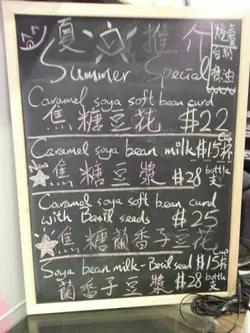 夏 推介
Summer Special
Caramel soya soft bean curd
焦糖豆花 $22
Caramel soya bean milk $15 cup
焦糖豆漿 $28 bottle 支
Caramel soya soft bean curd
with Basil seeds $25
焦糖蘭香子豆花
Soya bean milk-Basil seed $15 cup
蘭香子豆漿 $28 bottle 支